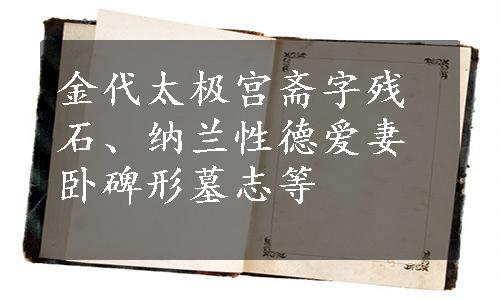 金代太极宫斋字残
石、纳兰性德爱妻
卧碑形墓志等